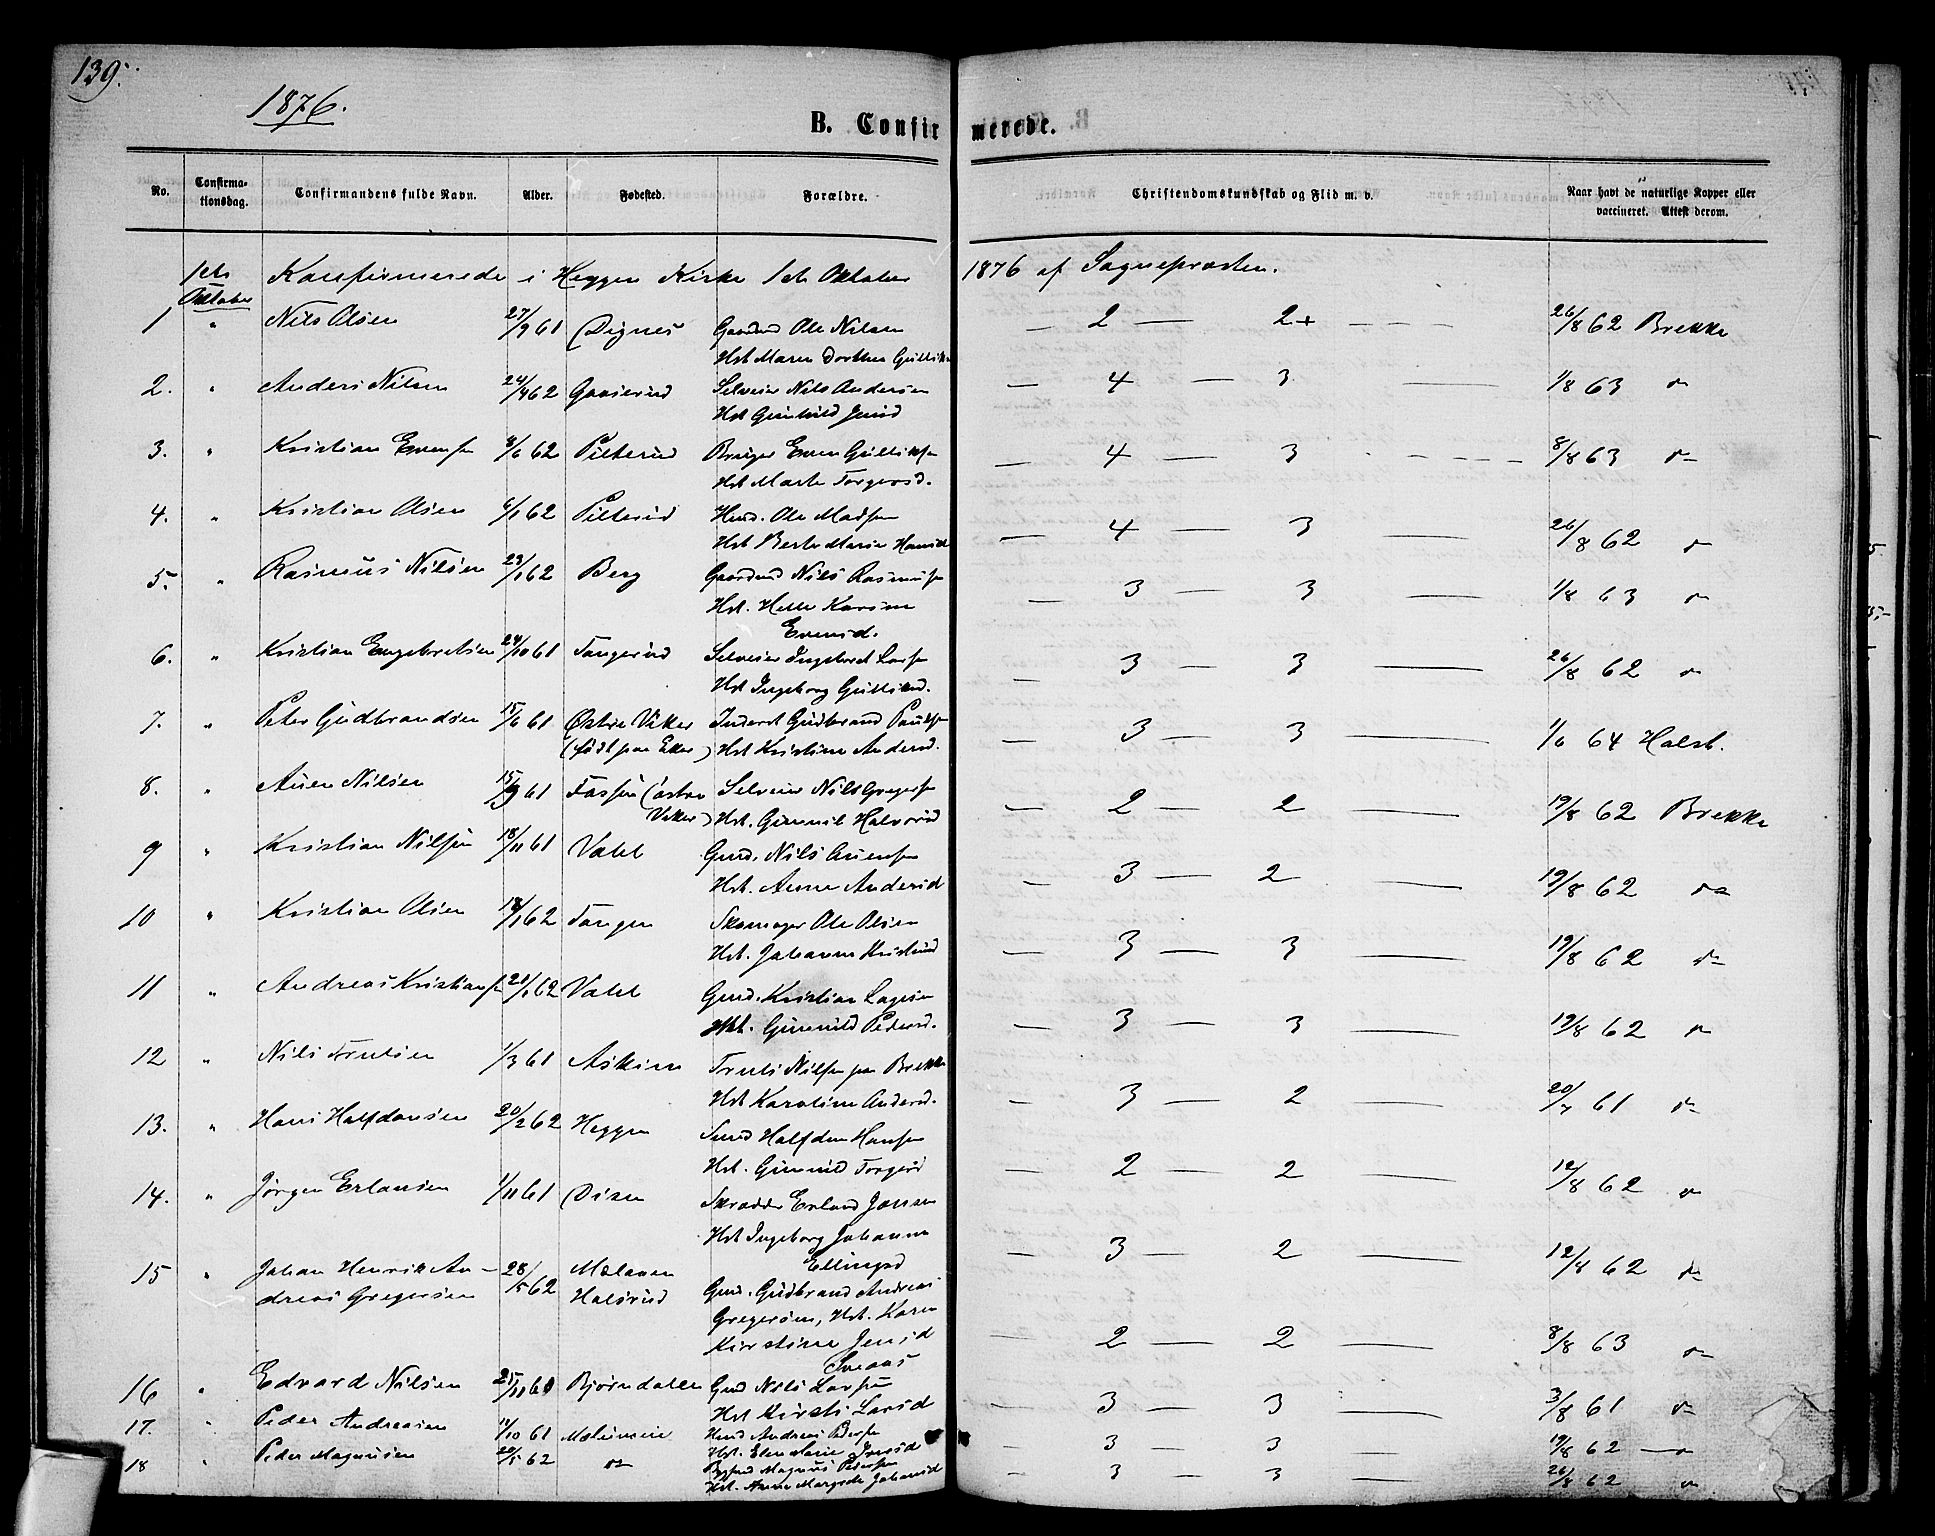 139.
1876.
B. Confirmerede.
No. Confirmationsdag. Confirmandens fulde Navn. Alder. Fødested. Forældre. Christendomskundskab og Flid m. v. Naar havt de naturlige Kopper eller vaccineret. Attest derom.
1ste Oktober Konfirmerede i Heggen Kirke 1ste Oktober 1876 af Sognepresten.
1 " Nils Olsen 27/9 61 Dignes Gaardmd Ole Nilsen 2 — 2+ 26/8 62 Brekke
Hst Maren Dorthea Gulliksd
2. " Anders Nilsen 24/4 62 Gaaserud Selveier Nils Andersen — 4 — 3 — 1/8 63 do
Hst Gunhild Jensd
3. " Kristian Evensen 8/6 62 Pilterud Bruger Even Gulliksen — 4 — 3 8/8 63 do
Hst Marte Torgersd.
4. " Kristian Olsen 6/1 62 Pilterud Husmd. Ole Madsen — 4 — 3 — 26/8 62 do
Hst Berte Marie Hansd
5. " Rasmus Nilsen 23/1 62 Berg Gaardmd Nils Rasmussen — 3 3 — 1/8 63 do
Hst. Helle Karine
Evensd.
6. " Kristian Engebretsen 24/10 61 Tangerud Selveier Ingebret Larsen — 3 — 3 — 26/8 62 do
Hst Ingeborg Gulliksd.
7. " Peter Gudbrandsen 15/6 61 Østre Viker Inderst Gudbrand Paulsen 3 — 3 — 1/6 64 Halst.
(født paa Eker) Hst Kristine Andersd.
8. " Auen Nilsen 15/9 61 Fossen (østre Selveier Nils Gregersen — 2 — 2 — 19/8 62 Brekke
Viker) Hst. Gunnil Halvorsd
9 " Kristian Nilsen 18/11 61 Vatel Gmd. Nils Auensen — 3 — 2 — 19/8 62 do
Hst. Anne Andersd
10 " Kristian Olsen 18/1 62 Tangen Skomager Ole Olsen — 3 — 3 — 19/8 62 do
Hst. Johanne Kristiansd
11 " Andreas Kristiansen 20/1 62 Vatel Gmd. Kristian Lagesen — 3 — 3 — 19/8 62 do
Hst. Gunnild Pedersd.
12 " Nils Trulsen 1/3 61 Askim Truls Nilsen paa Brekke — 3 — 2 — 20/7 61 do
Hst Karoline Andersd.
13. " Hans Halfdansen 20/2 62 Heggen Halfdan Hansen — 2 — 2 — 12/8 62 do
Hst. Gunnild Torgersd
14. " Jørgen Erlansen 1/11 61 Disen Skrædder Erland Jansen — 3 — 2 — 12/8 62 do
Hst Ingeborg Johanne
Ellingsd
15 " Johan Henrik Andreas Gregersen 28/5 62 Halsrud Gmd. Gudbrand Andreas — 2 — 2 — 8/8 63 do
Gregersen, Hst. Karen
Kirstine Jensd
16 " Edvard Nilsen 25/11 60 Bjørndalen Gmd Nils Larsen — 3 — 3 — 3/8 61 do
Hst Kirsti Larsd
17. " Peder Andreasen 14/10 61 Husmd Andreas Pedersen — 3 3 — 19/8 62 — do
Hst. Elen Marie Iversd
18 " Peder Magnusen 20/5 62 do Magnus Pedersen — 3 — 3 — 26/8 62 do
Hst. Anne Margrete Johansd